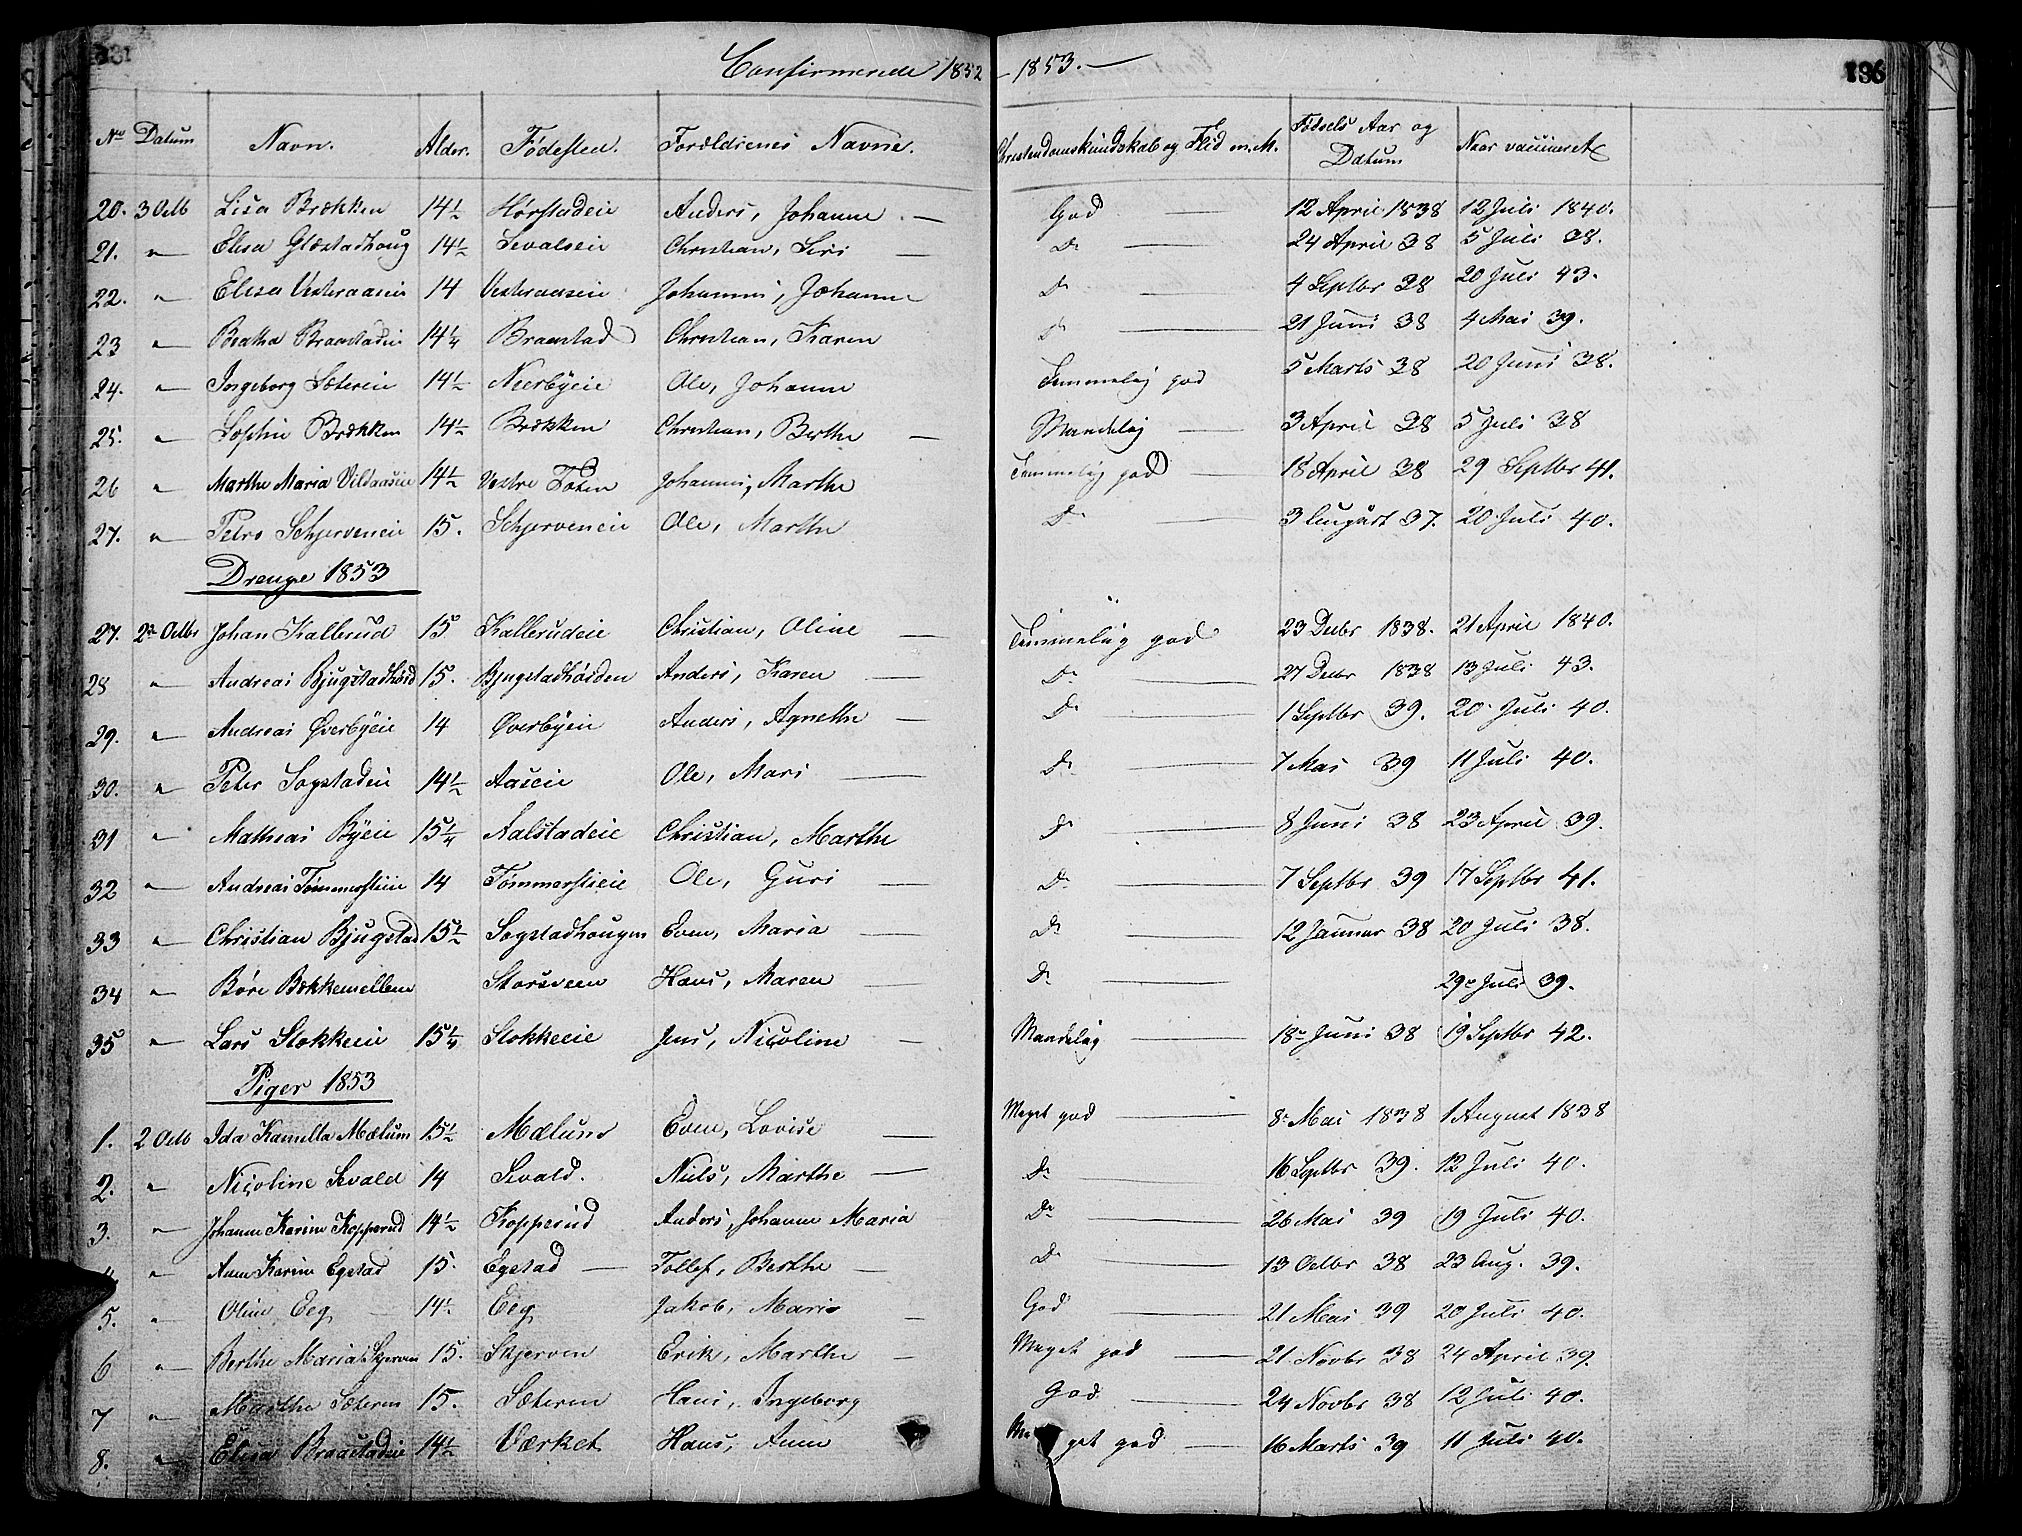 Confirmerede 1852 - 1853. -
136
No Datum Navn. Alder. Fødested. Forældrenes Navne. Christendomskundskab og Flid m.M. Fødsels Aar og Datum Naar vaccineret
20. 3 Octb Lisa Brækken 14½ Hørstadeie Anders, Johanne - God - 12 April 1838 12 Juli 1840.
21. " Elisa Glæstadhoug 14½ Sevalseie Christian, Siri - Do 24 April 38 5 Juli 38.
22. " Elisa Vesteraaseie 14 Vesteraaseie Johannes, Johanne Do 4 Septbr 38 20 Juli 43.
23 " Beatha Braastadeie 14¼ Braastad Christian, Karen Do - 21 Juni 38 4 Mai 39.
24. " Ingeborg Sætereie 14½ Neerbyeie Ole, Johanne Temmelig god 5 Marts 38 20 Juni 38.
25. " Sophie Brækken 14½ Brækken Christian, Berthe - Maadelig - 3 April 38 5 Juli 38
26 " Marthe Maria Vildaaseie 14½ Vestre Toten Johannes, Marthe Temmelig god - 18 April 38 29 Septbr 41.
27. " Petro Schjerveneie 15. Schjerveneie Ole, Marthe Do - 3 August 37. 20 Juli 40.
Drenge 1853
27. 2n Octbr Johan Kallerud 15 Kallerudeie Christian, Oline - Temmelig god 23 Decbr 1838. 21 April 1840.
28 " Andreas Bjugstadhøid 15. Bjugstadhøiden Anders, Karen - Do - 27 Decbr 1838 13 Juli 43.
29. " Andreas Øverbyeie 14 Øverbyeie Anders, Agnethe - Do - 1 Septbr 39. 20 Juli 40.
30. " Peter Sogstadeie 14½ Aaseie Ole, Mari - Do - 7 Mai 39 11 Juli 40.
31 " Mathias Byeie 15¼ Aalstadeie Christian, Marthe Do - 8 Juni 38 23 April 39.
32 " Andreas Tømmerstieie 14 Tømmerstieie Ole, Guri - Do - 7 Septbr 39 17 Septbr 41.
33 " Christian Bjugstad 15½ Sogstadhougen Even, Maria - Do - 12 Januar 38 20 Juli 38.
34 " Børe Bækkemellem Storsveen Hans, Maren - Do - 29 Juli 39.
35 " Lars Stokkeeie 15¼ Stokkeeie Jens, Nicoline - Maadelig - 18 Juni 38 19 Septbr 42.
Piger 1853
1. 2 Octb Ida Kamilla Mælum 15½ Mælund Even, Lovise - Meget god - 8 Mai 1838 1 August 1838
2. " Nicoline Sevald 14 Sevald. Niels, Marthe - Do - 16 Septbr 39. 12 Juli 40.
3. " Johanne Karine Kopperud 14½ Kopperud Anders, Johanne Maria Do - 26 Mai 39 19 Juli 40.
" Anne Karine Egstad 15. Egstad - Tollef, Berthe - Do - 13 Octbr 38 23 Aug. 39.
5. " Oline Eeg 14½ Eeg Jakob, Mari - God - 21 Mai 39 20 Juli 40.
6 " Berthe Maria Skjerven 15. Skjerven Erik, Marthe - Meget god - 21 Novbr 38 24 April 39.
7 " Marthe Sæteren 15. Sæteren Hans, Ingeborg God - 24 Novbr 38 12 Juli 40.
8. " Elisa Braastadeie 14½ Værket Hans, Anne Meget god - 16 Marts 39 11 Juli 40.